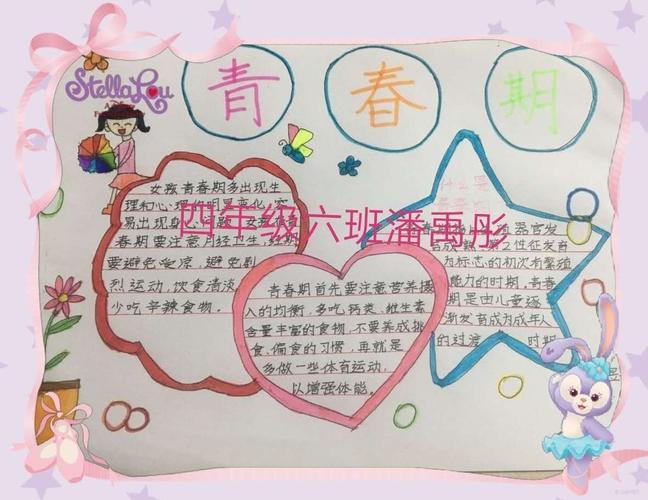 StellaLou
青春期
四年级六班潘禹彤
女孩青春期多出现生
理和心理的明显变化,容
易出现身心问题
春期要注意月经卫生,经期
要避免受凉,避免剧
烈运动,饮食清淡
少吃辛辣食物。
青春期首先要注意营养摄
入的均衡,多吃钙类,维生素
含量丰富的食物,不要养成挑
食、偏食的习惯,再就是
多做一些体育运动,
以增强体能。
什么是
器官发
育成熟,第二性征发育
为标志的初次有繁殖
能力的时期。青春
期是由儿童逐
渐发育成为成年人
的过渡 时期